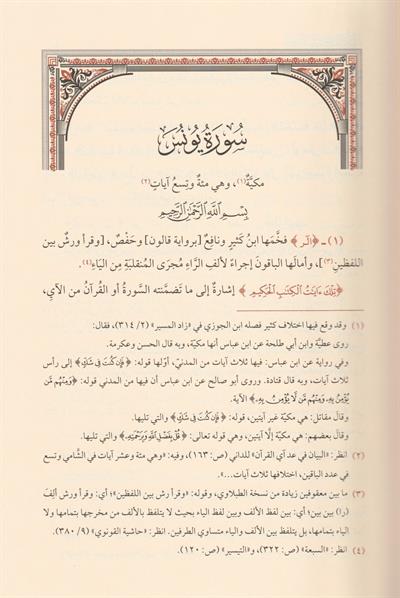 سُورَةُ يُونُسَ
مكيَّةٌ(١)، وهي مئةٌ وتِسعُ آياتٍ(٢)
بِسْمِ اللَّهِ الرَّحْمَٰنِ الرَّحِيمِ
(١) ـ ﴿الٓر﴾ فخَّمَها ابنُ كَثيرٍ ونافعٌ [برواية قالون] وحَفْصٌ، [وقرأ ورش بين
اللفظينِ(٣)]، وأمالَها الباقونَ إجراءً لألفِ الرَّاءِ مُجرَى المُنقلبةِ مِن الياءِ(٤).
﴿تِلْكَ ءَايَٰتُ ٱلْكِتَٰبِ ٱلْحَكِيمِ﴾ إشارةٌ إلى ما تَضمَّنته السُّورةُ أو القُرآنُ من الآيِ،
(١) وقد وقع فيها اختلاف كثير فصله ابن الجوزي في «زاد المسير» (٢/ ٣١٤)، فقال:
روى عطية وابن أبي طلحة عن ابن عباس أنها مكية، وبه قال الحسن وعكرمة.
وفي رواية عن ابن عباس: فيها ثلاث آيات من المدنيّ، أوّلها قوله: ﴿فَإِن كُنتَ فِي شَكٍّ﴾ إلى رأس
ثلاث آيات، وبه قال قتادة. وروى أبو صالح عن ابن عباس أن فيها من المدني قوله: ﴿وَمِنْهُم مَّن
يُؤْمِنُ بِهِ وَمِنْهُم مَّن لَّا يُؤْمِنُ بِهِ﴾. الآية.
وقال مقاتل: هي مكيّة غير آيتين، قوله: ﴿فَإِن كُنتَ فِي شَكٍّ﴾ والتي تليها.
وقال بعضهم: هي مكيّة إلّا آيتين، وهي قوله تعالى: ﴿قُلْ بِفَضْلِ اللَّهِ وَبِرَحْمَتِهِ﴾ والتي تليها.
(٢) انظر: «البيان في عد آي القرآن» للداني (ص: ١٦٣)، وفيه: «وهي مئة وعشر آيات في الشّامي وتسع
في عدد الباقين، اختلافها ثلاث آيات...».
(٣) ما بين معقوفين زيادة من نسخة الطبلاوي، وقوله: «وقرأ ورش بين اللفظين»؛ أي: وقرأ ورش ألِفَ
(را) بين بين؛ أي: بين لفظ الألف وبين لفظ الياء بحيث لا يتلفظ بالألف من مخرجها بتمامها ولا
الياء بتمامها، بل يتلفظ بين الألف والياء متساوي الطرفين. انظر: «حاشية القونوي» (٩/ ٣٨٠).
(٤) انظر: «السبعة» (ص: ٣٢٢)، و«التيسير» (ص: ١٢٠).